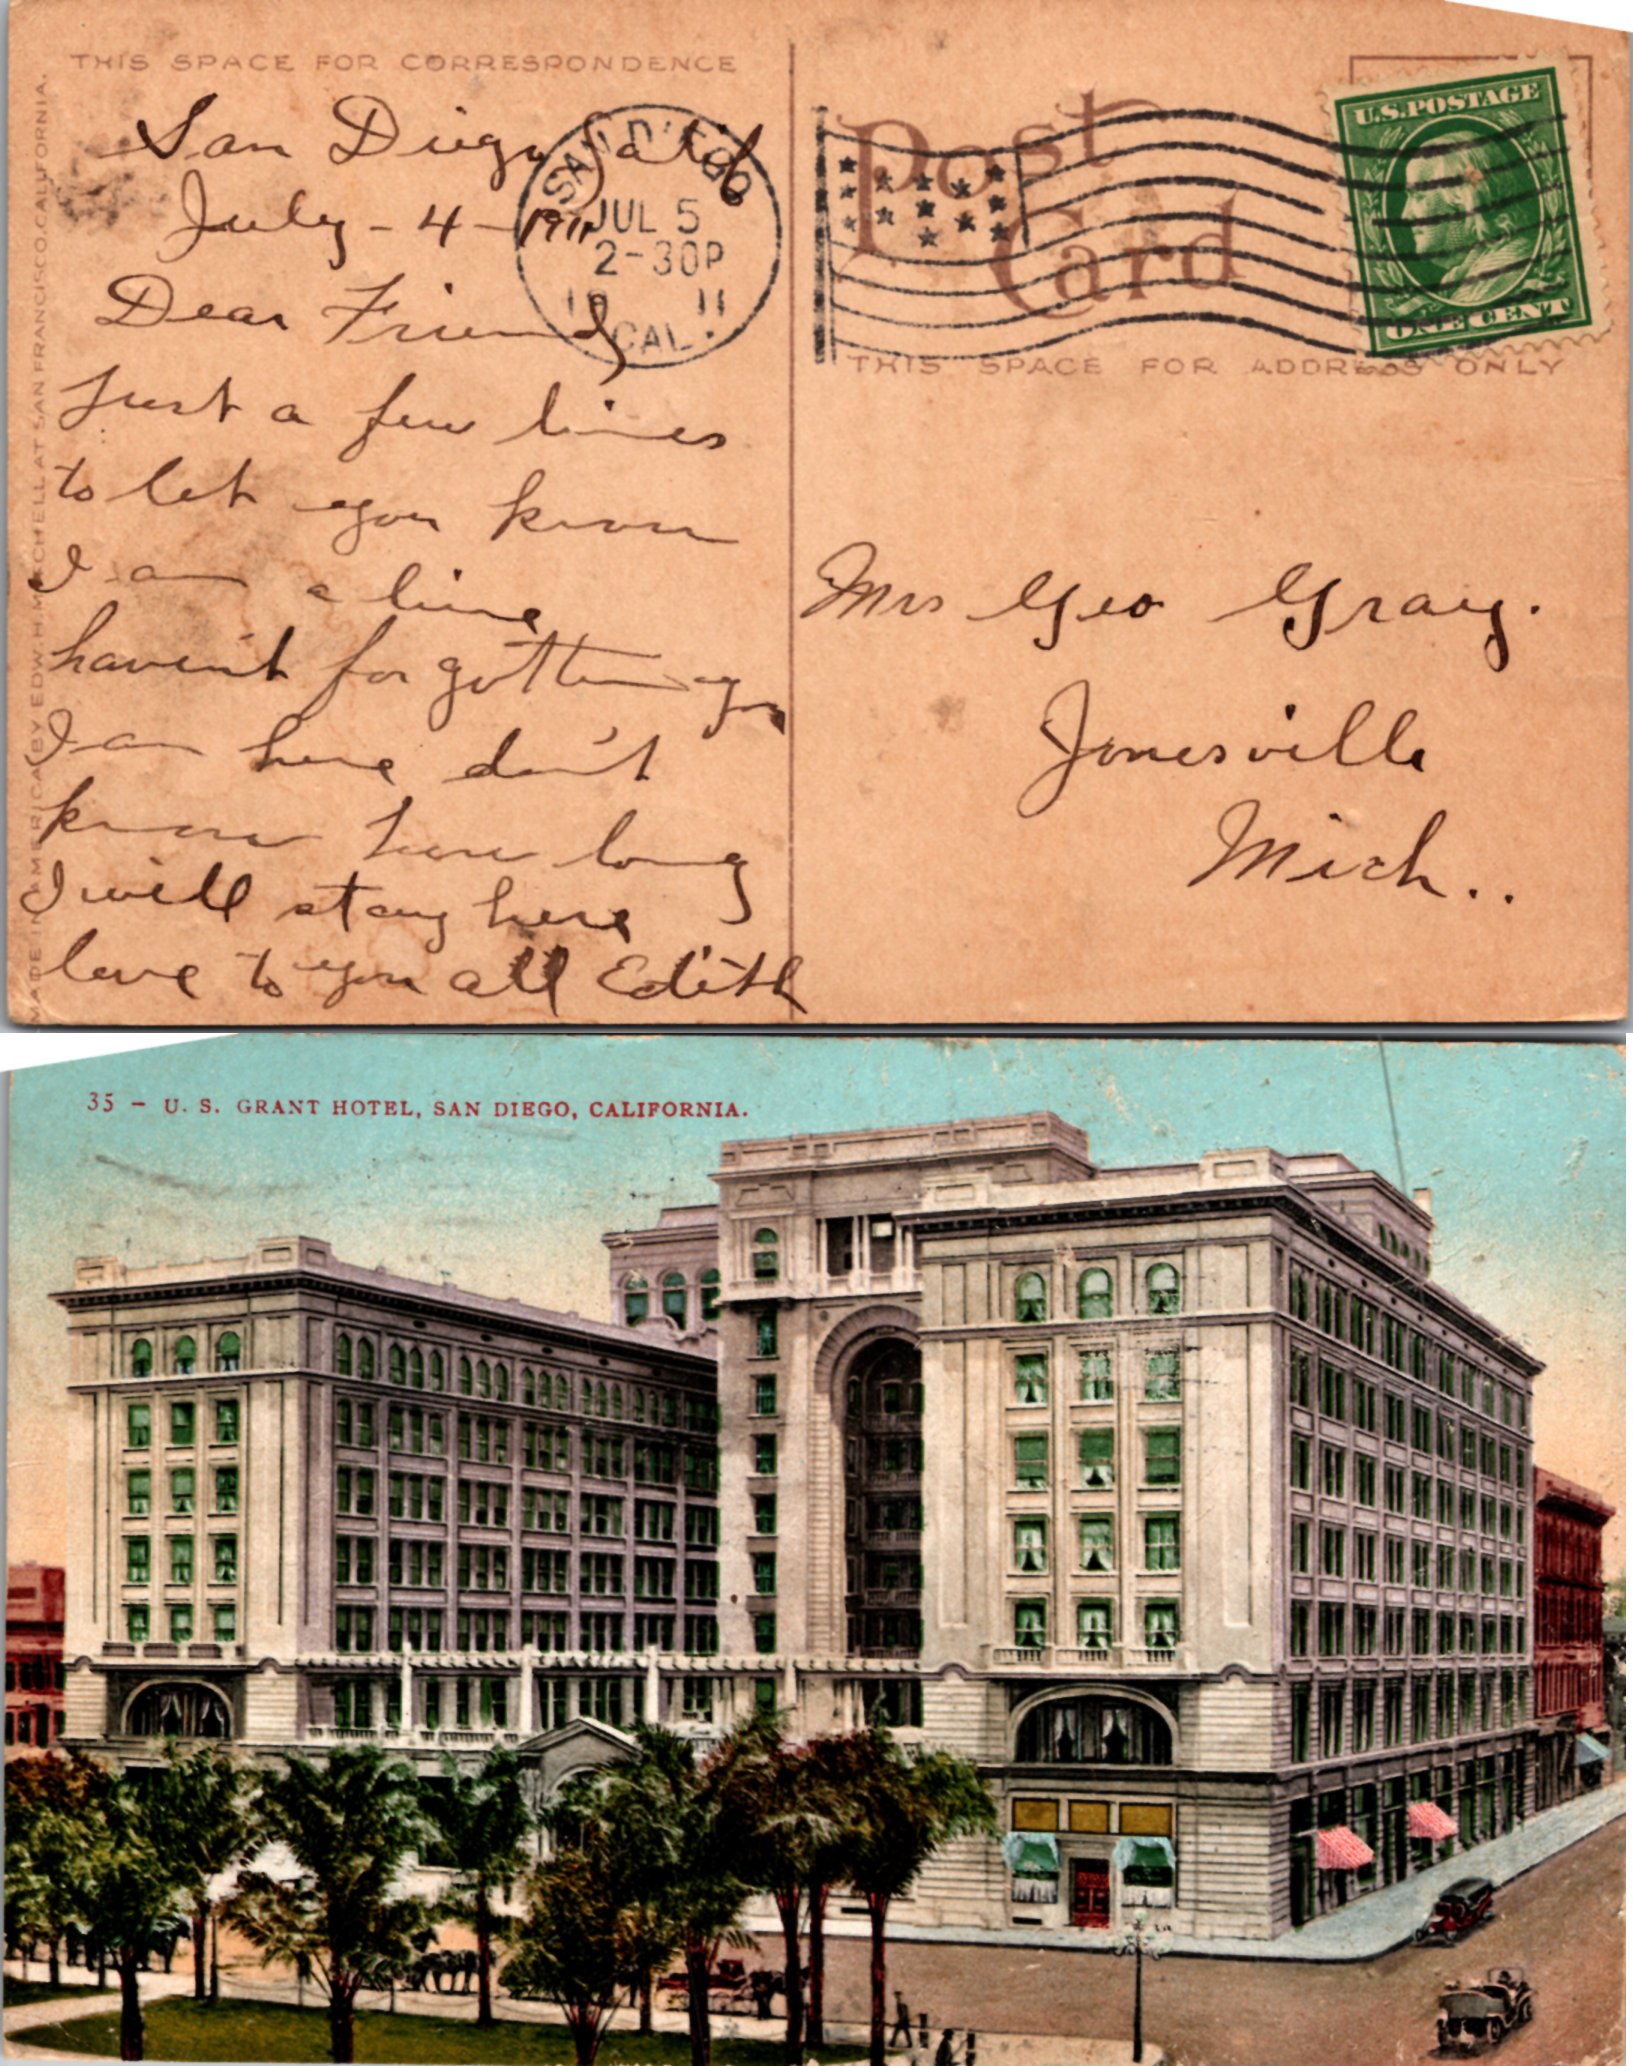 THIS SPACE FOR CORRESPONDENCE
San Diego Calif
July - 4 - 1911
Dear Friend
Just a few lines
to let you know
I am alive
haven't forgotten you
I am here don't
know how long
I will stay here
love to you all Edith
MADE IN AMERICA BY EDW. H. MITCHELL AT SAN FRANCISCO, CALIFORNIA.
SAN DIEGO
JUL 5
2-30P
19 11
CAL.
Post
Card
U.S. POSTAGE
ONE CENT
THIS SPACE FOR ADDRESS ONLY
Mrs Geo Gray.
Jonesville
Mich..
35 - U. S. GRANT HOTEL, SAN DIEGO, CALIFORNIA.